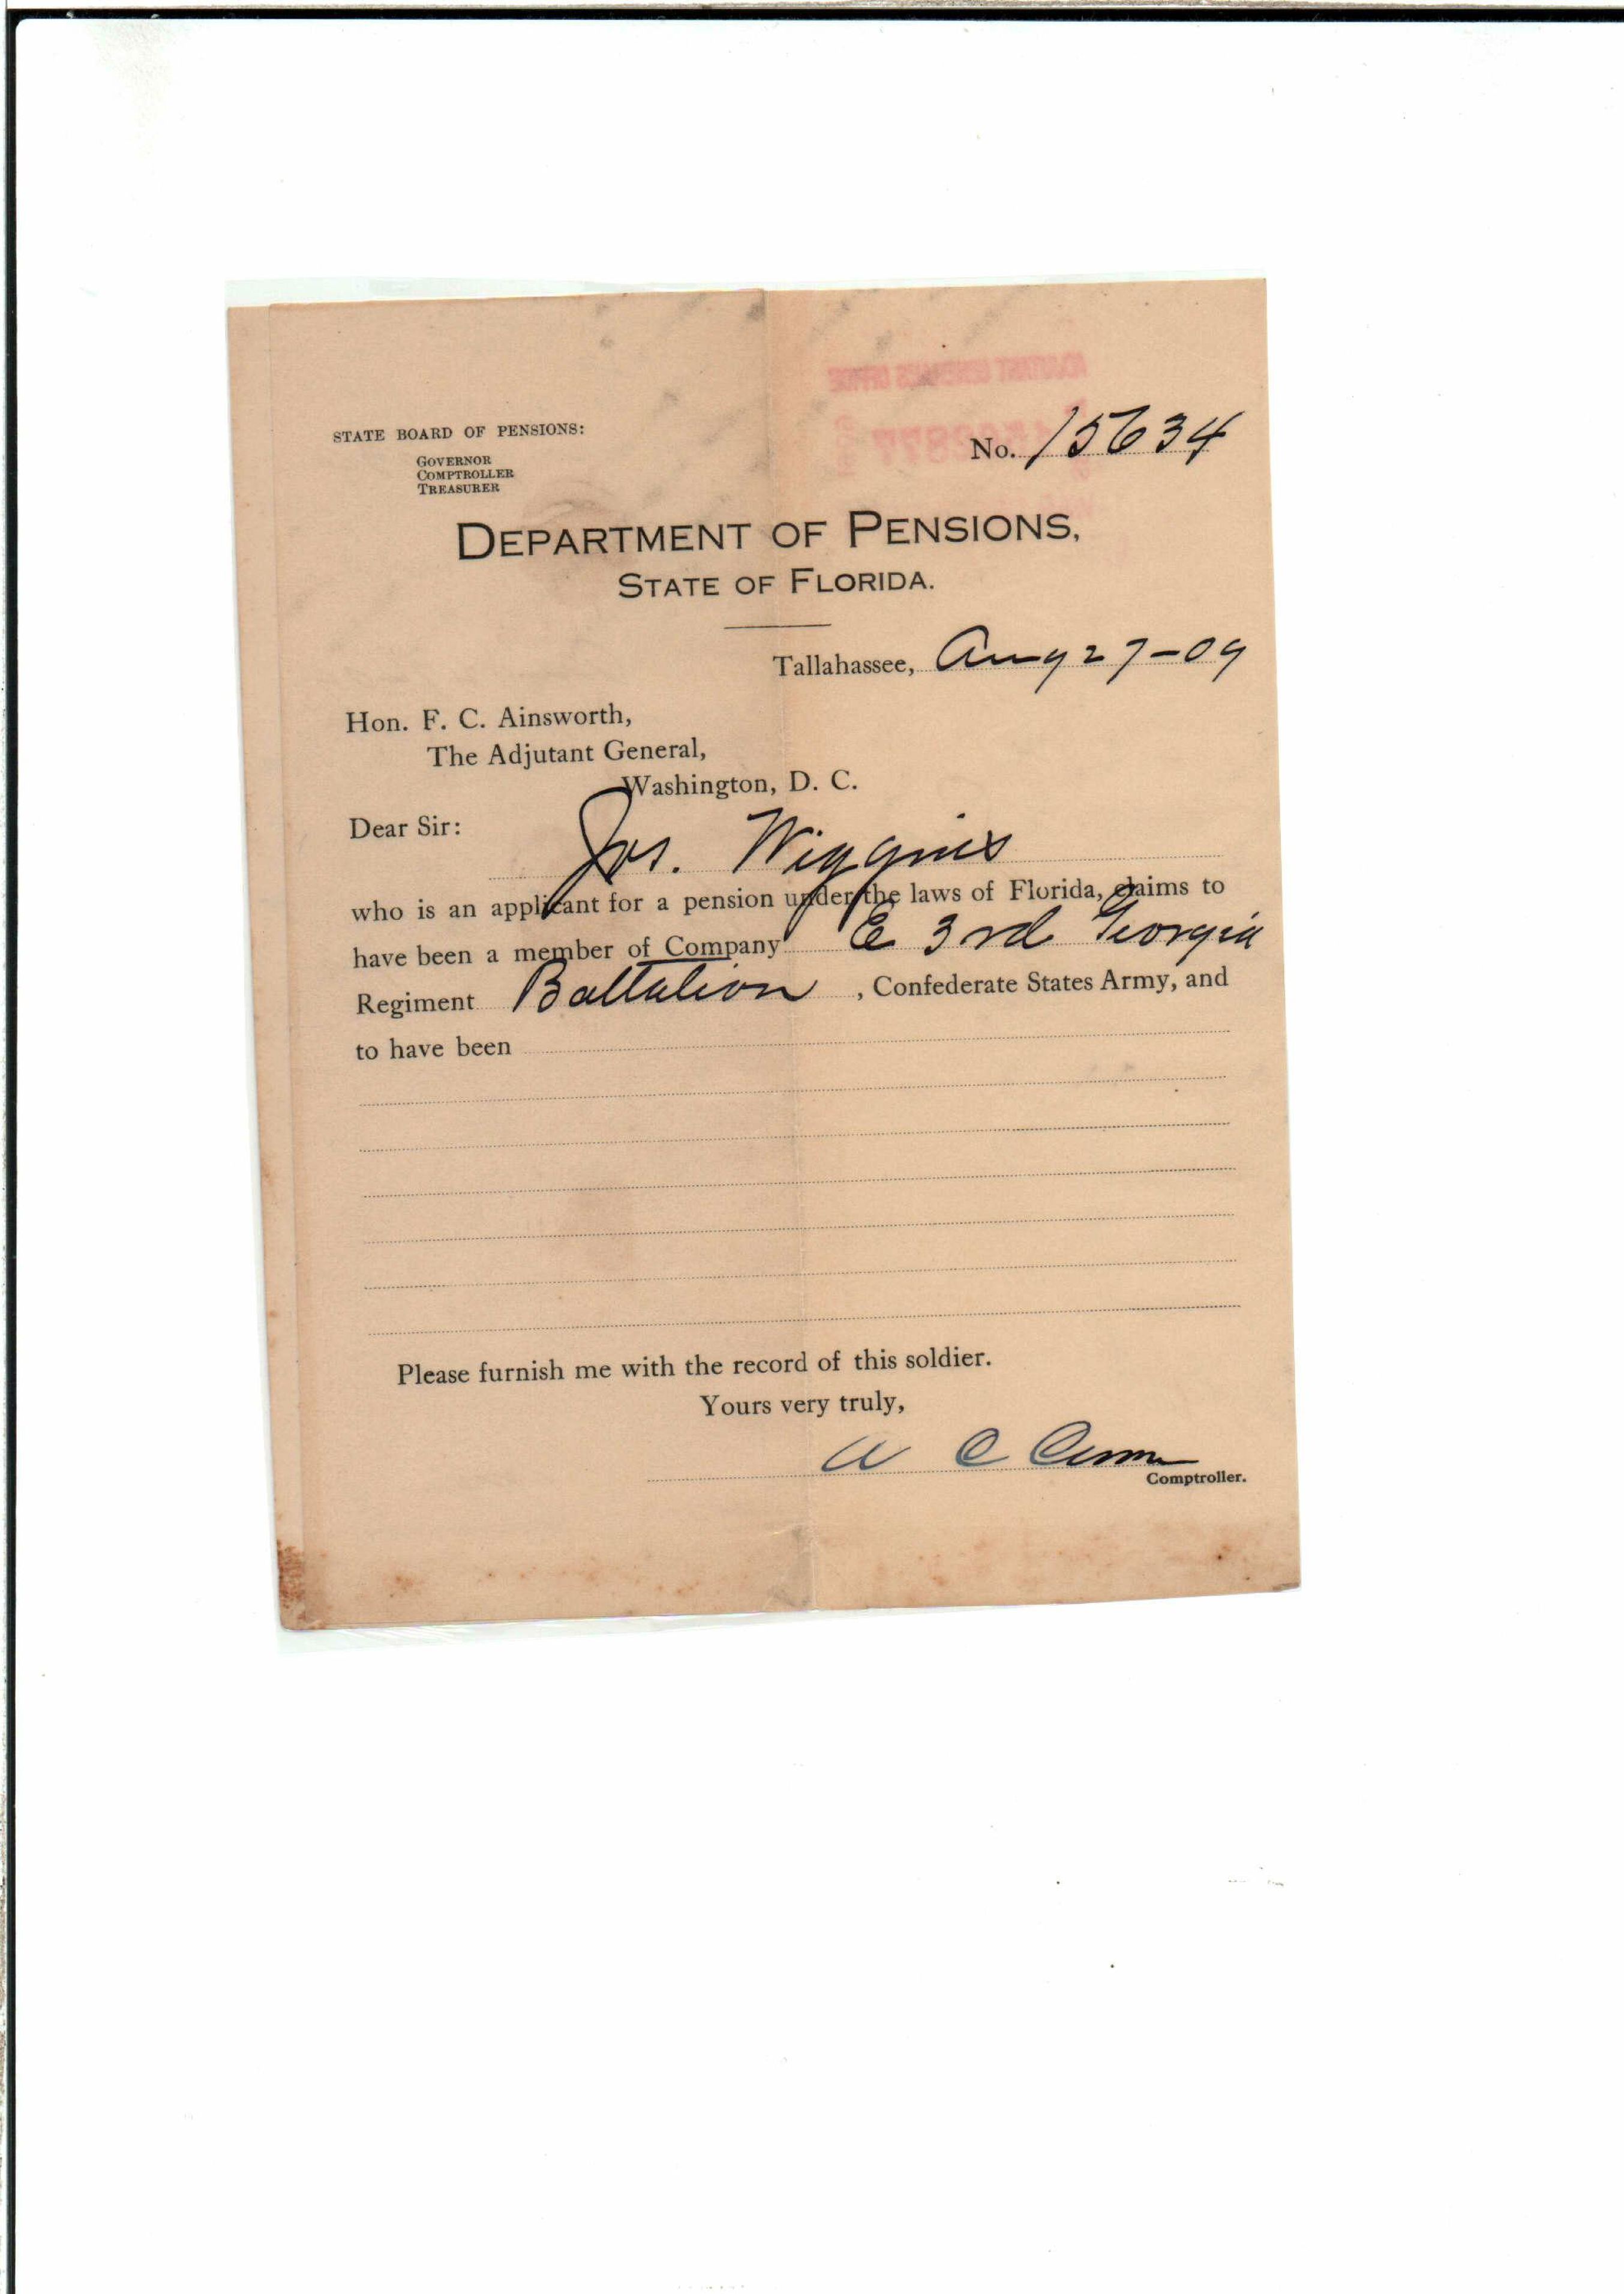 STATE BOARD OF PENSIONS:
GOVERNOR
COMPTROLLER
TREASURER
No. 15634
DEPARTMENT OF PENSIONS,
STATE OF FLORIDA.
Tallahassee, Aug 27-09
Hon. F. C. Ainsworth,
The Adjutant General,
Washington, D. C.
Dear Sir:
Jos. Wiggins
who is an applicant for a pension under the laws of Florida, claims to
have been a member of Company E 3rd Georgia
Regiment Battalion, Confederate States Army, and
to have been
Please furnish me with the record of this soldier.
Yours very truly,
A C Croom
Comptroller.
ADJUTANT GENERAL'S OFFICE